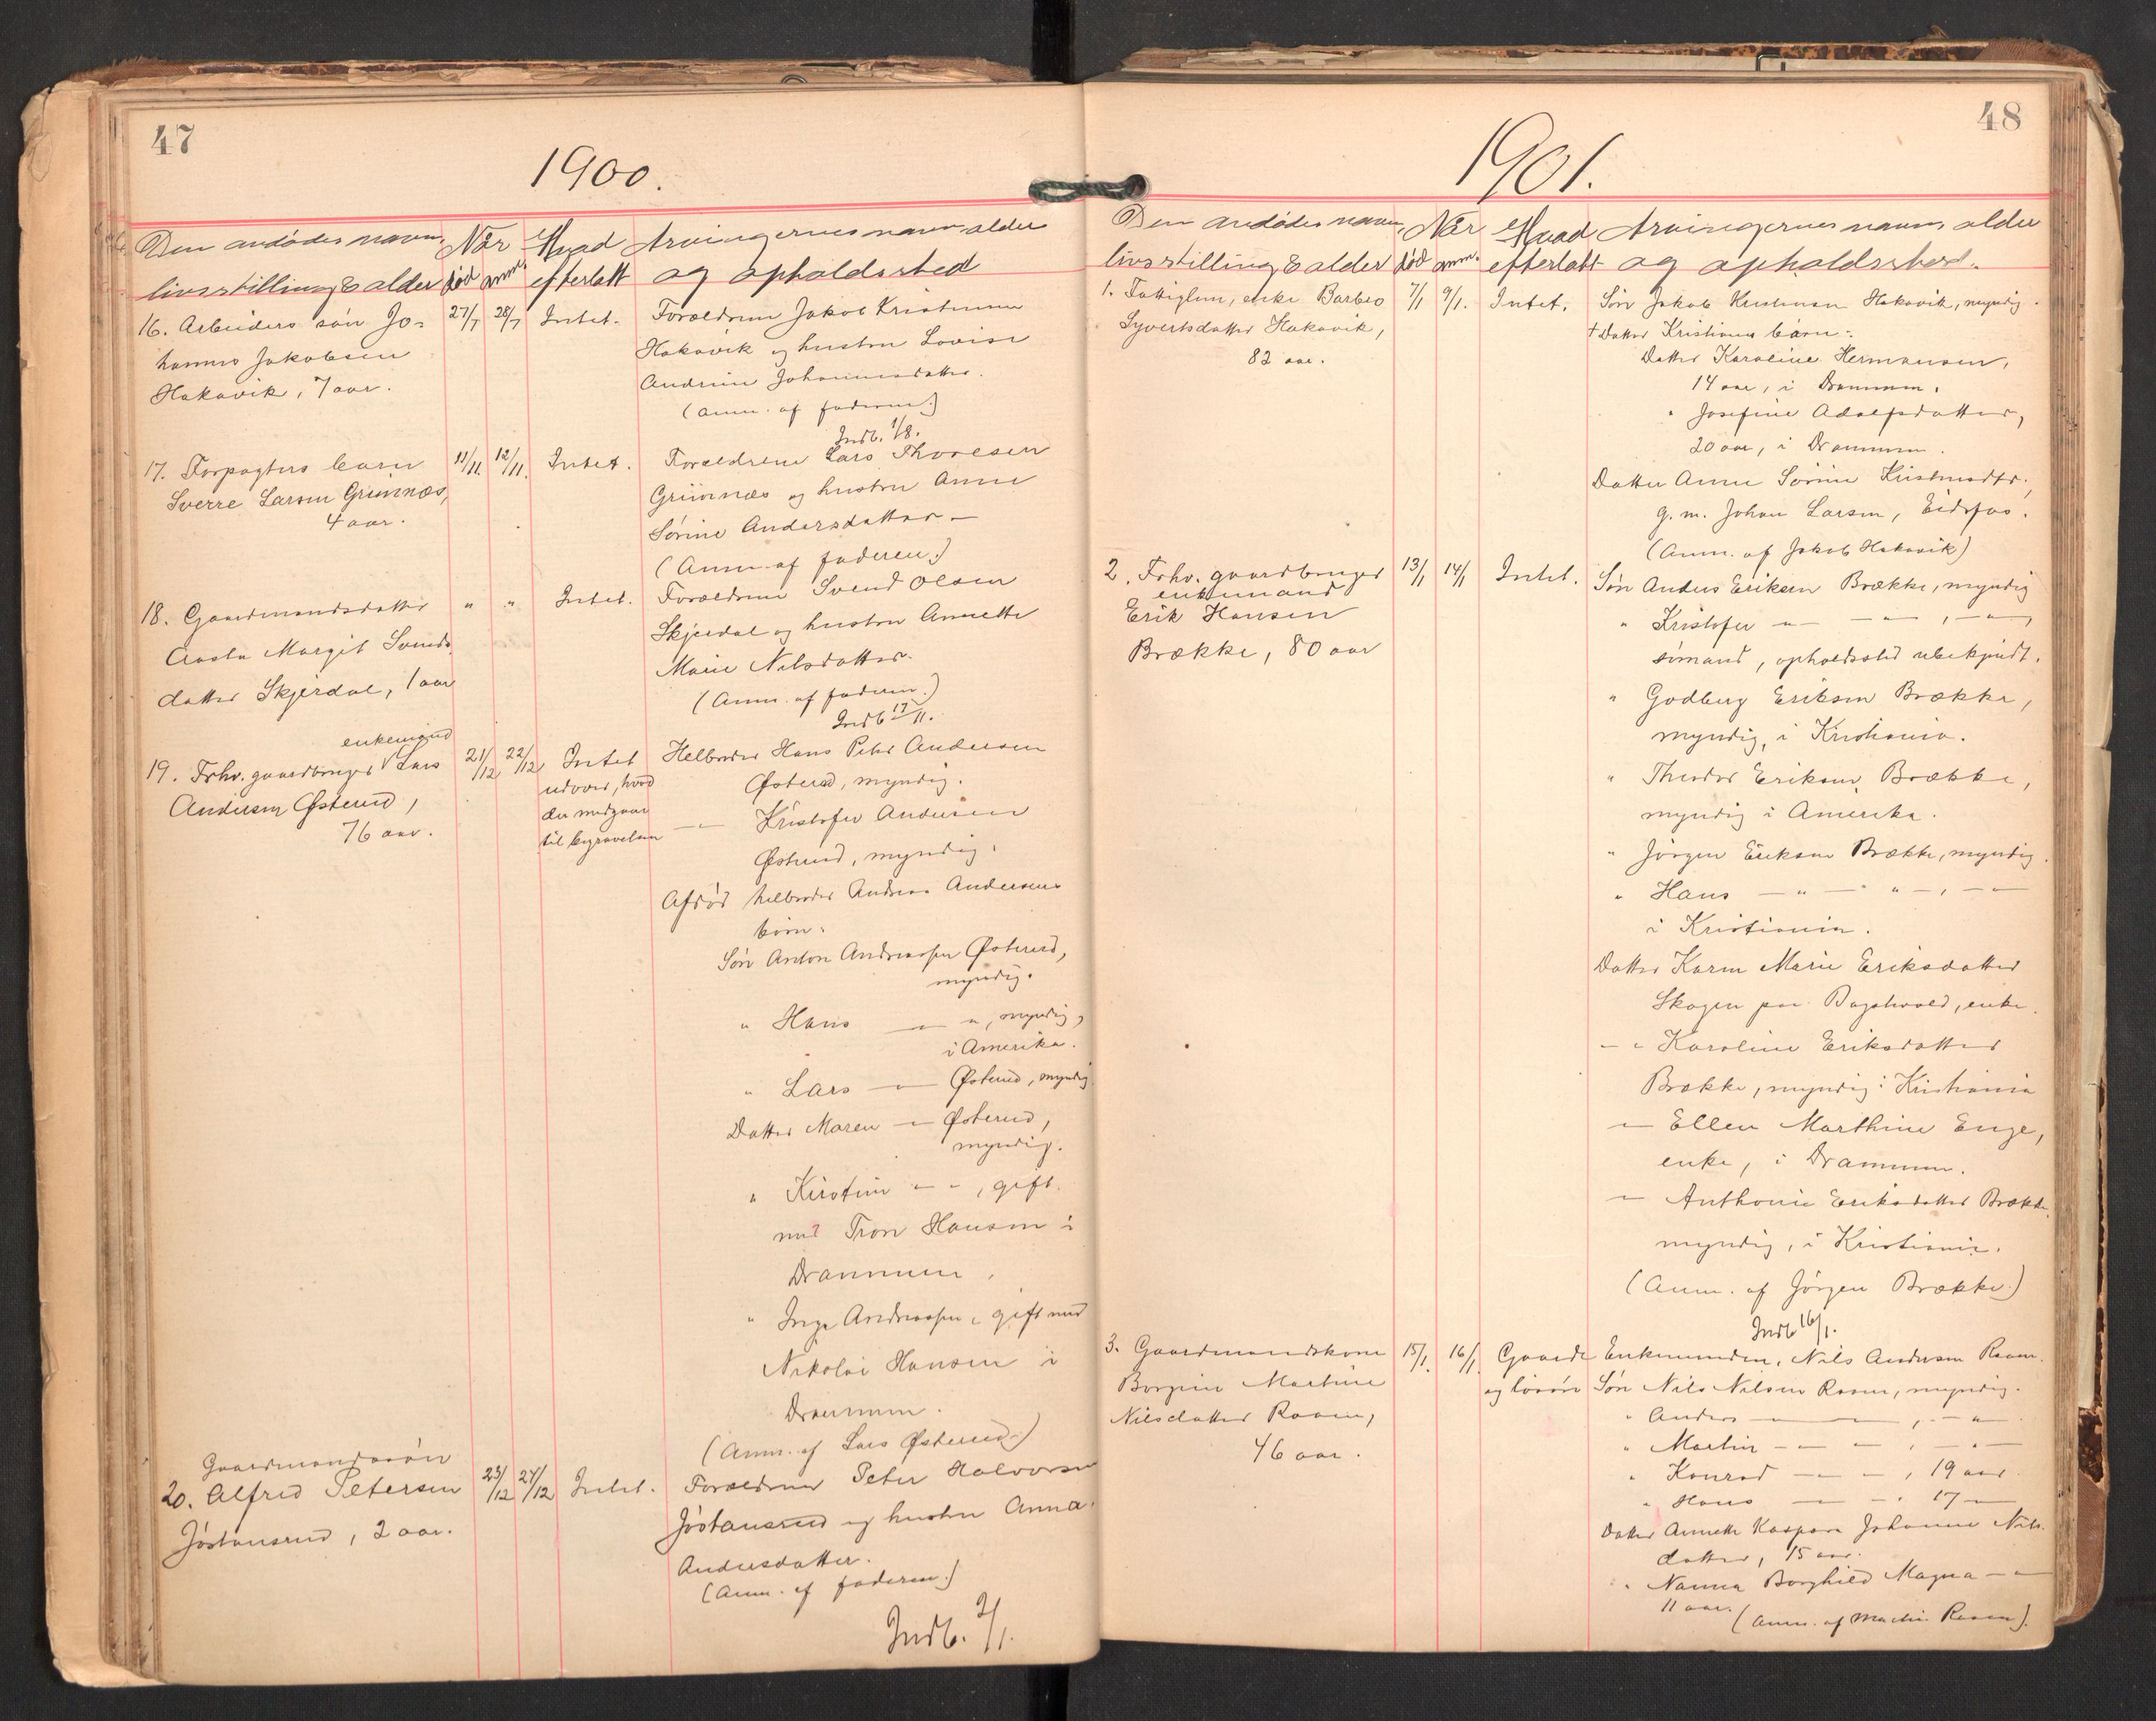 47
1900.
Den avdødes navn, Når Hvad Arvingernes navn, alder
livsstilling & alder død anm. efterlatt og opholdssted
16. Arbeiders søn Jo- 27/7 28/7 Intet. Forældrene Jakob Kristensen
hannes Jakobsen Hakavik og hustru Lovise
Hakavik, 7 aar. Andrine Johannesdatter.
(Anm. af faderen.)
Indb. 1/8.
17. Forpagters barn 11/11. 12/11. Intet. Forældrene Lars Thoresen
Sverre Larsen Grimnæs, Grimnæs og hustru Anne
4 aar. Sørine Andersdatter —
(Anm. af faderen.)
18. Gaardmandsdatter " " Intet. Forældrene Svend Olsen
Aasta Margit Svends- Skjerdal og hustru Annette
datter Skjerdal, 1 aar Marie Nilsdatter.
(Anm. af faderen.)
Indb 17/11.
enkemand
19. Frhv. gaardbruger Lars 21/12 22/12 Intet Helbroder Hans Peter Andersen
Andersen Østerud, udover, hvad Østerud, myndig.
76 aar. der medgaar — " — Kristofer Andersen
til begravelsen Østerud, myndig.
Afdød helbroder Andreas Andersens
børn:
Søn Anton Andreassen Østerud,
myndig.
" Hans — " — ", myndig,
i Amerika.
" Lars — " — Østerud, myndig
Datter Maren — " — Østerud,
myndig.
" Kirstine — " — , gift
med Tron Hansen i
Drammen.
" Inge Andreassen, gift med
Nikolai Hansen i
Drammen.
(Anm. af Lars Østerud.)
Gaardmandssøn
20. Alfred Petersen 23/12 24/12 Intet. Forældrene Peter Halvorsen
Jøstansrud, 2 aar. Jøstansrud og hustru Anna
Andersdatter.
(Anm. af faderen.)
Indb. 2/1.
48
1901.
Den avdødes navn, Når Hvad Arvingernes navn, alder
livsstilling & alder død anm. efterlatt og opholdssted.
1. Fattiglem, enke Barbro 7/1 9/1. Intet. Søn Jakob Kristensen Hakavik, myndig.
Syvertsdatter Hakavik, † Datter Kristianes barn:
82 aar. Datter Karoline Hermansen,
14 aar, i Drammen.
" Josefine Adolfsdatter,
20 aar, i Drammen.
Datter Anne Sørine Kristensdtr.,
g. m. Johan Larsen, Eidsfos.
(Anm. af Jakob Hakavik)
2. Frhv. gaardbruger 13/1 14/1 Intet. Søn Anders Eriksen Brække, myndig
enkemand " Kristofer — " — — " — , — " —,
Erik Hansen sømand, opholdssted ubekjendt.
Brække, 80 aar " Godberg Eriksen Brække,
myndig, i Kristiania.
" Theodor Eriksen Brække,
myndig i Amerika.
" Jørgen Eriksen Brække, myndig.
" Hans — " — " — , — " —
i Kristiania.
Datter Karen Marie Eriksdatter
Skogen paa Bogstrand, enke.
— " Karoline Eriksdatter
Brække, myndig i Kristiania
— " Ellen Marthine Enge,
enke, i Drammen.
— " Anthonie Eriksdatter Brække,
myndig, i Kristiania.
(Anm. af Jørgen Brække.)
Indb 16/1.
3. Gaardmandskone 15/1. 16/1. Gaarde Enkemanden, Nils Andersen Raaen.
Borgine Martine og løsøre Søn Nils Nilsen Raaen, myndig.
Nilsdatter Raaen, " Anders — " — — " — , — " —
46 aar. " Martin — " — " — , — " —
" Konrad — " — " — , 19 aar.
" Hans — " — " — , 17 — " —
Datter Annette Kaspara Johanne Nils-
datter, 15 aar.
" Nanna Borghild Magna — " —
11 aar. (Anm. af Martin Raaen).